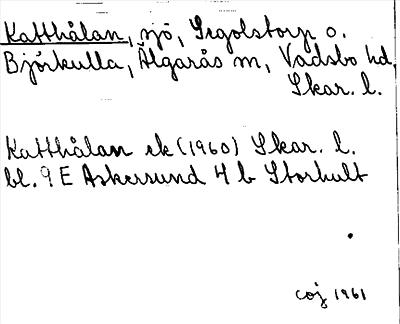 Katthålan, sjö, Segolstorp o.
Björkulla, Älgarås sn, Vadsbo hd,
Skar. l.
Katthålan ek (1960) Skar. l.
bl. 9 E Askersund 4 b Storhult
coj 1961